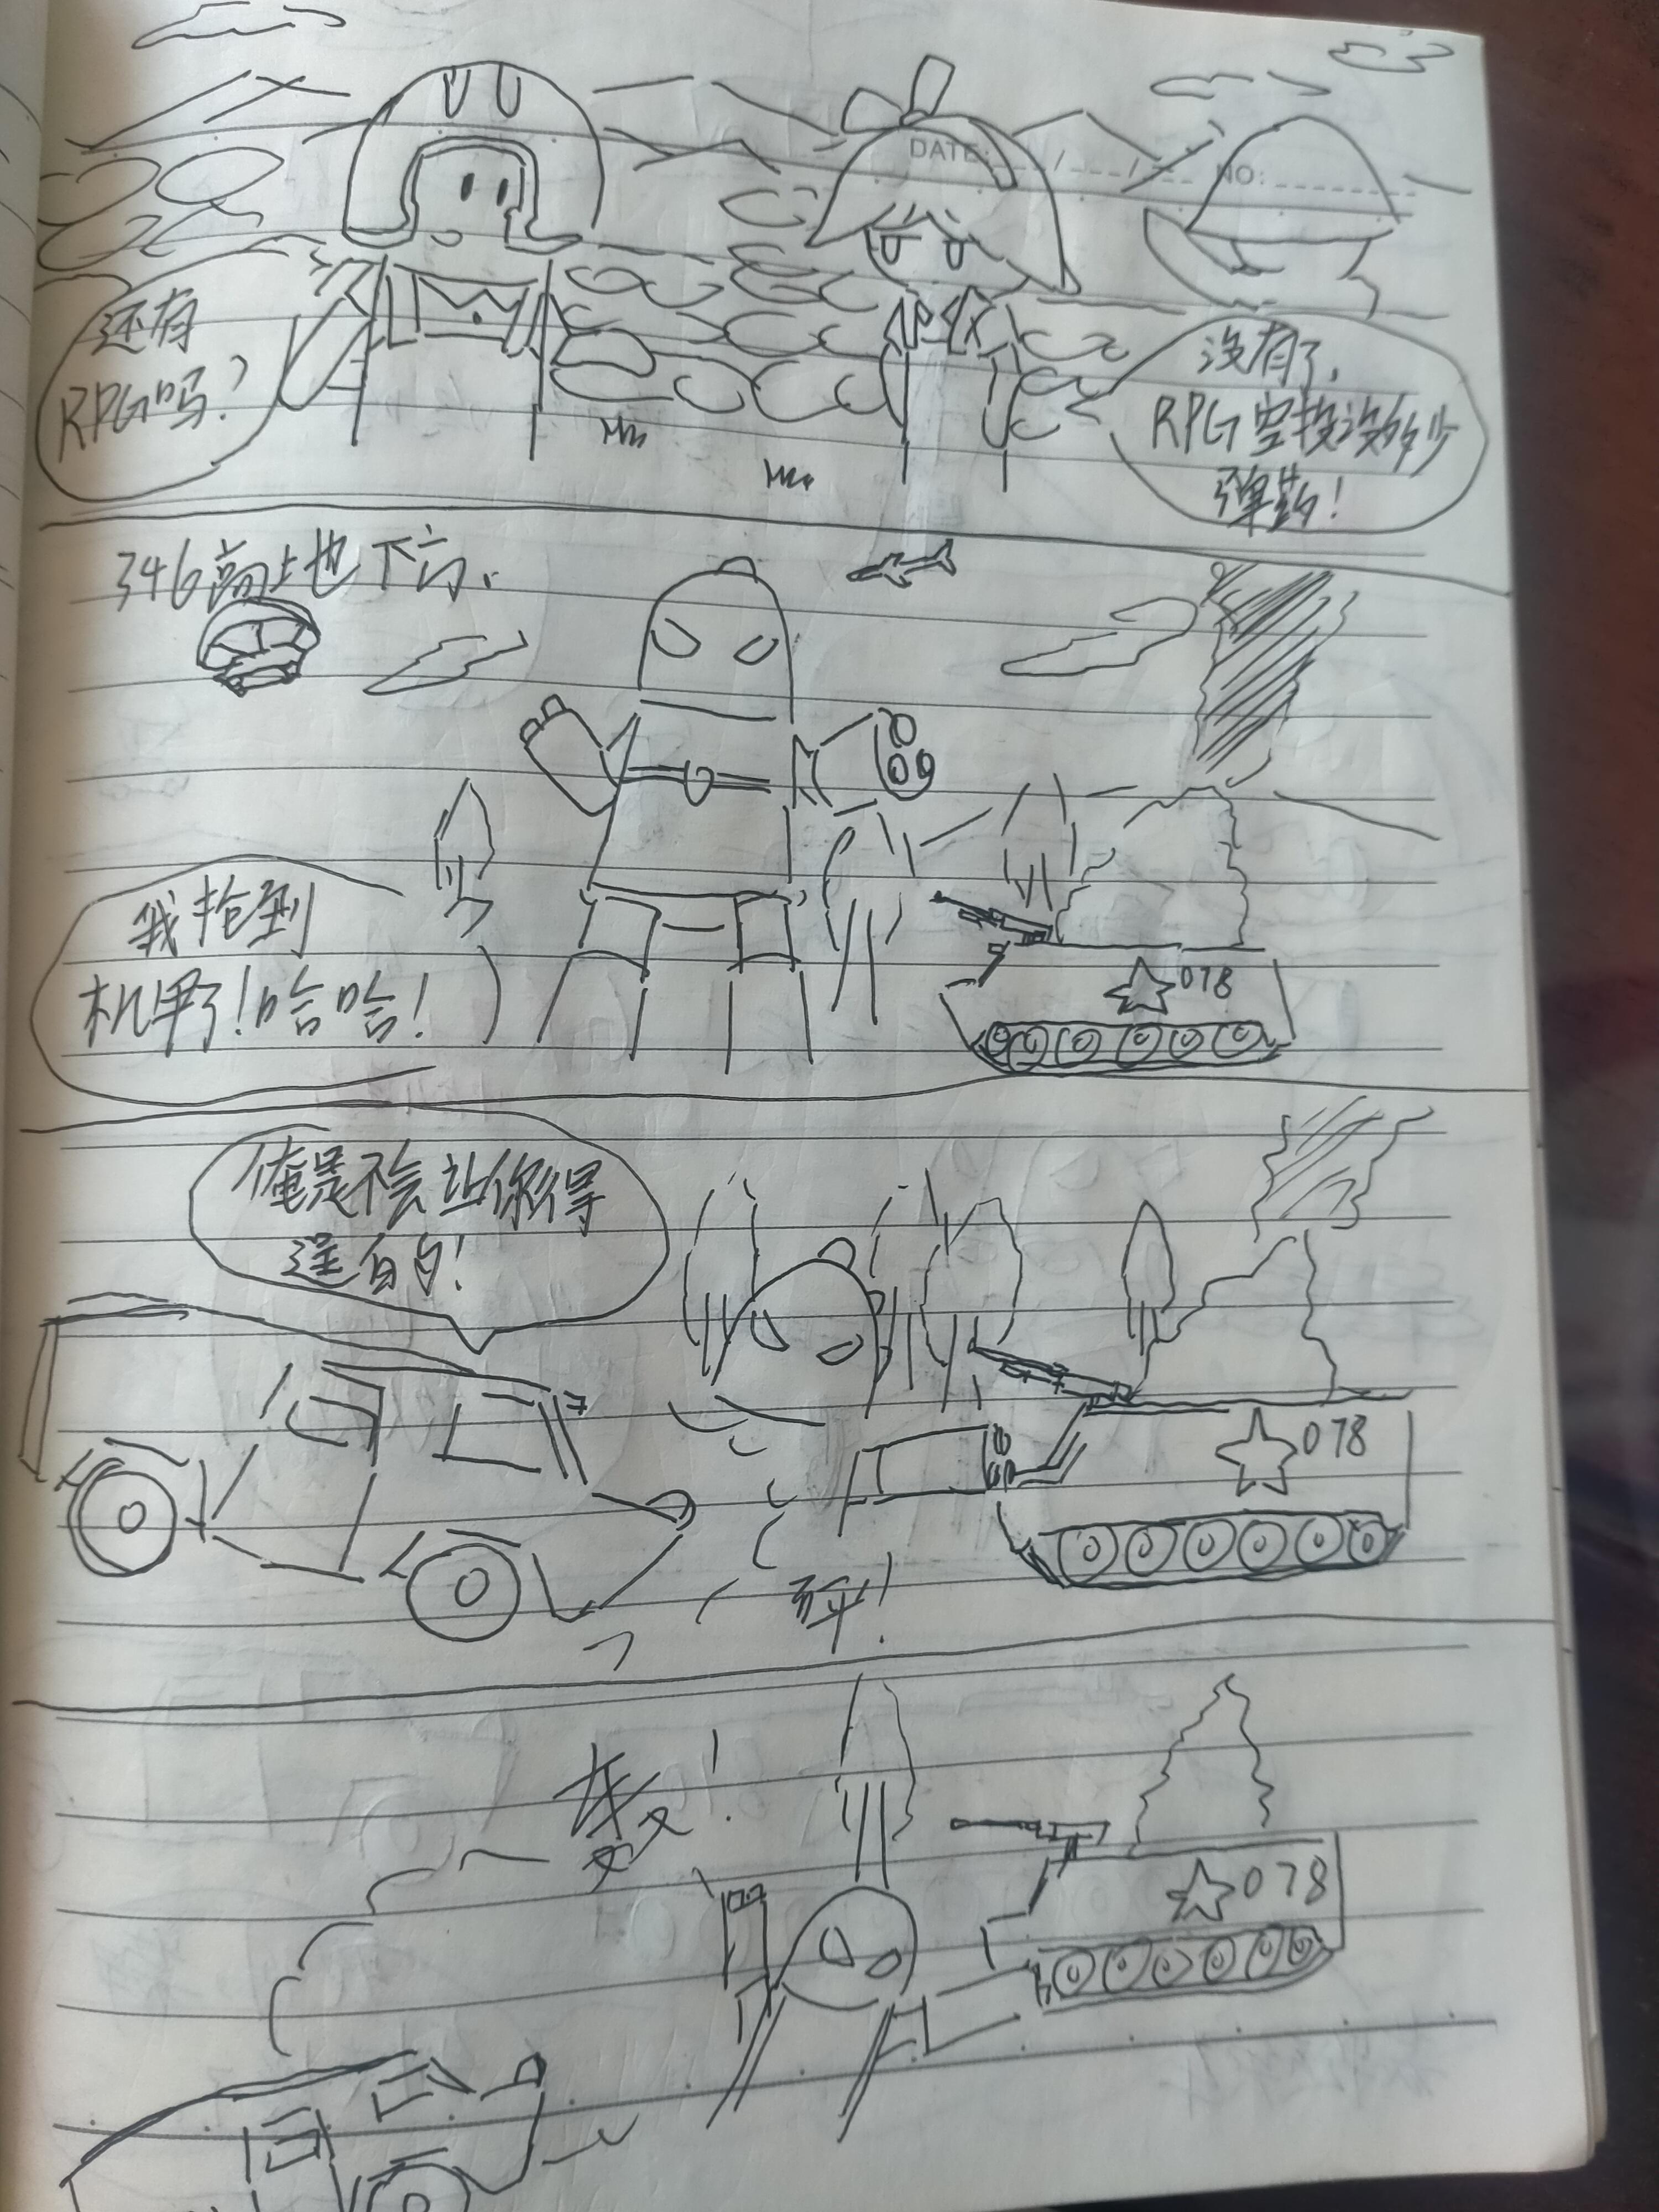 DATE: / / NO:
还有
RPG吗？
没有了，
RPG空投没多少
弹药！
346高地下方、
我抢到
机甲了！哈哈！
078
俺是不会让你得
逞的！
078
砰！
！
078